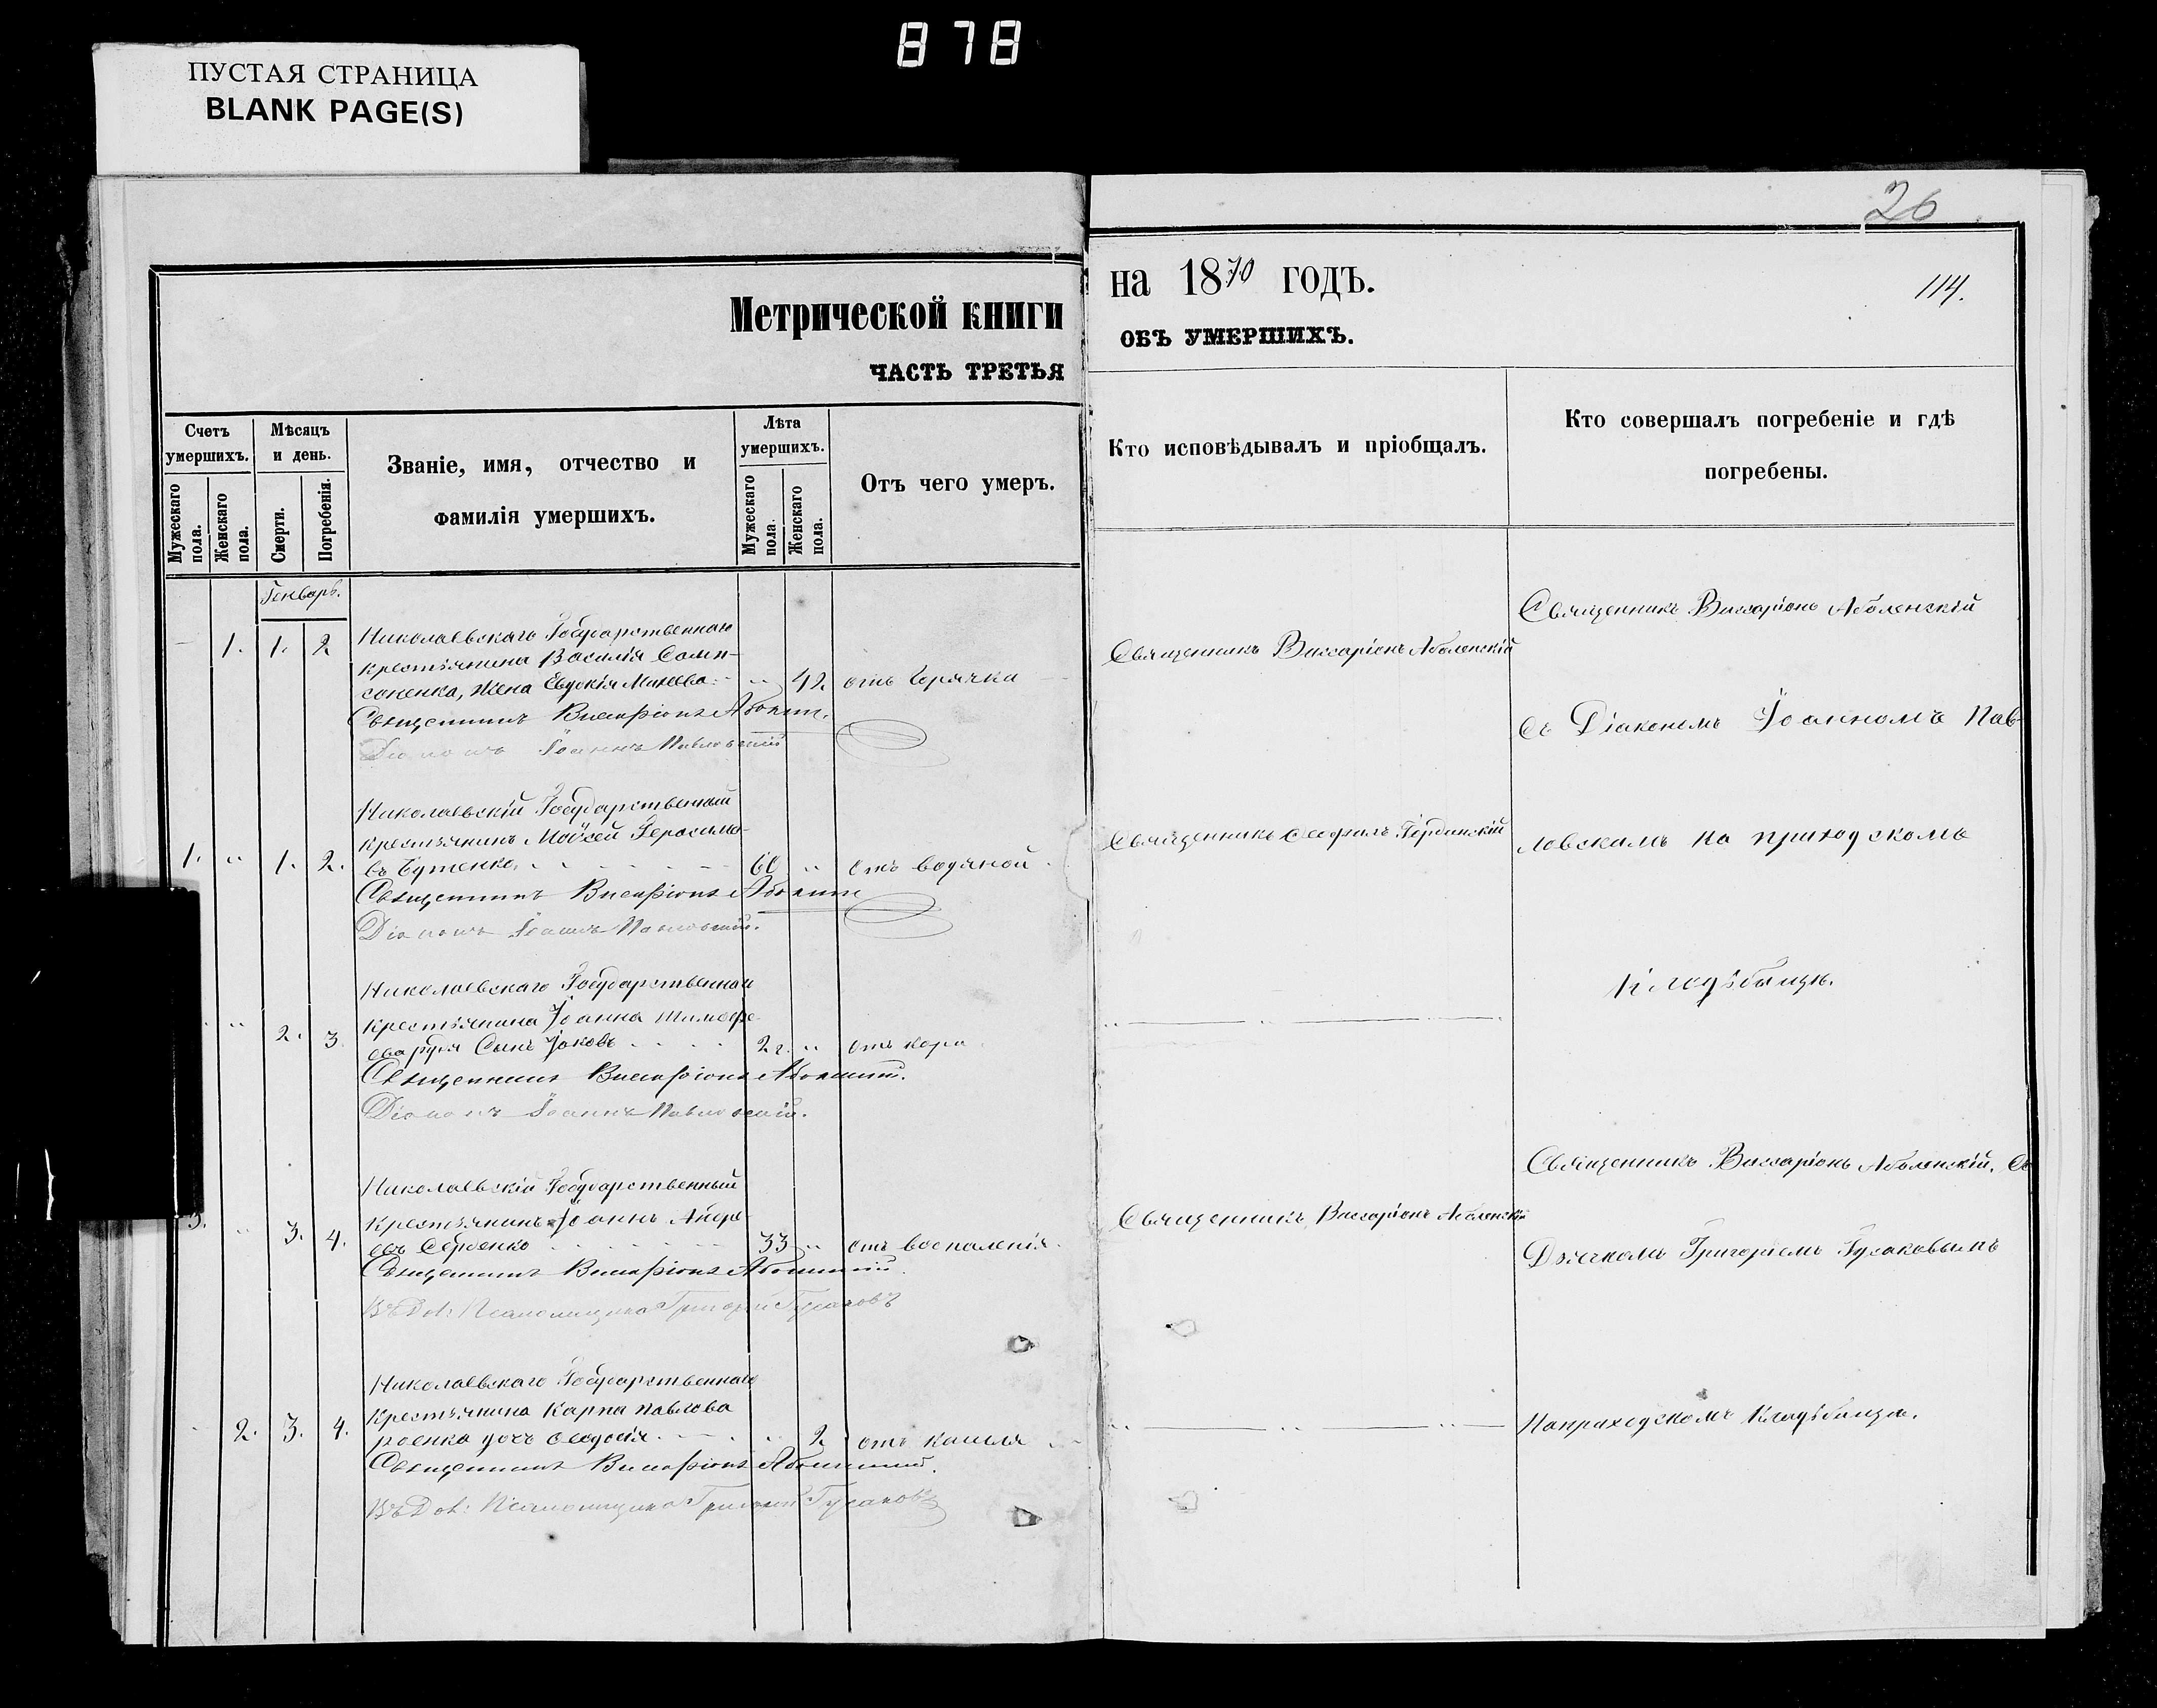 878
ПУСТАЯ СТРАНИЦА
BLANK PAGE(S)
26
Метрической книги
ЧАСТЬ ТРЕТЬЯ
на 1870 ГОДЪ.
114.
ОБЪ УМЕРШИХЪ.
Счетъ умершихъ.
Мужескаго пола.
Женскаго пола.
Мѣсяцъ и день.
Смерти.
Погребенія.
Званіе, имя, отчество и
фамилія умершихъ.
Лѣта умершихъ.
Мужескаго пола.
Женскаго пола.
Отъ чего умеръ.
Кто исповѣдывалъ и пріобщалъ.
Кто совершалъ погребеніе и гдѣ
погребены.
Генварь.
1. 1. 2 Николаевскаго Государственнаго
крестьянина Василія Самп-
соненка, жена Евдокія Михеева 42 отъ горячки
Священникъ Виссаріонъ
Діаконъ Іоаннъ Павловскій
Николаевскій Государственный
крестьянинъ Моѵсей Герасимо-
1. 1. 2. въ 60 отъ водяной
Священникъ Виссаріонъ
Діаконъ Іоаннъ Павловскій.
Николаевскаго Государственнаго
крестьянина Іоанна Тимофе-
2. 3. Сынъ Іаковъ 2 г. отъ кори
Священникъ Виссаріонъ
Діаконъ Іоаннъ Павловскій.
Николаевскій Государственный
крестьянинъ Іоаннъ Андре-
3. 3. 4. евъ Серденко 33 отъ воспаленія
Священникъ Виссаріонъ
Псаломщика Григорій Гусаковъ
Николаевскаго Государственнаго
крестьянина Карпа Павлова
2. 3. 4. дочь Ѳеодосія 2 отъ кашля
Священникъ Виссаріонъ
Псаломщика Григорій Гусаковъ
Священникъ Виссаріонъ Аболенскій
Священникъ Ѳеофилъ
Священникъ Виссаріонъ Аболенскій
Священникъ Виссаріонъ Аболенскій
съ Діакономъ Іоанномъ Пав-
ловскимъ на приходскомъ
кладбищѣ.
Священникъ Виссаріонъ Аболенскій. Съ
Дьячкомъ Григоріемъ Гусаковымъ
На приходскомъ кладбищѣ.